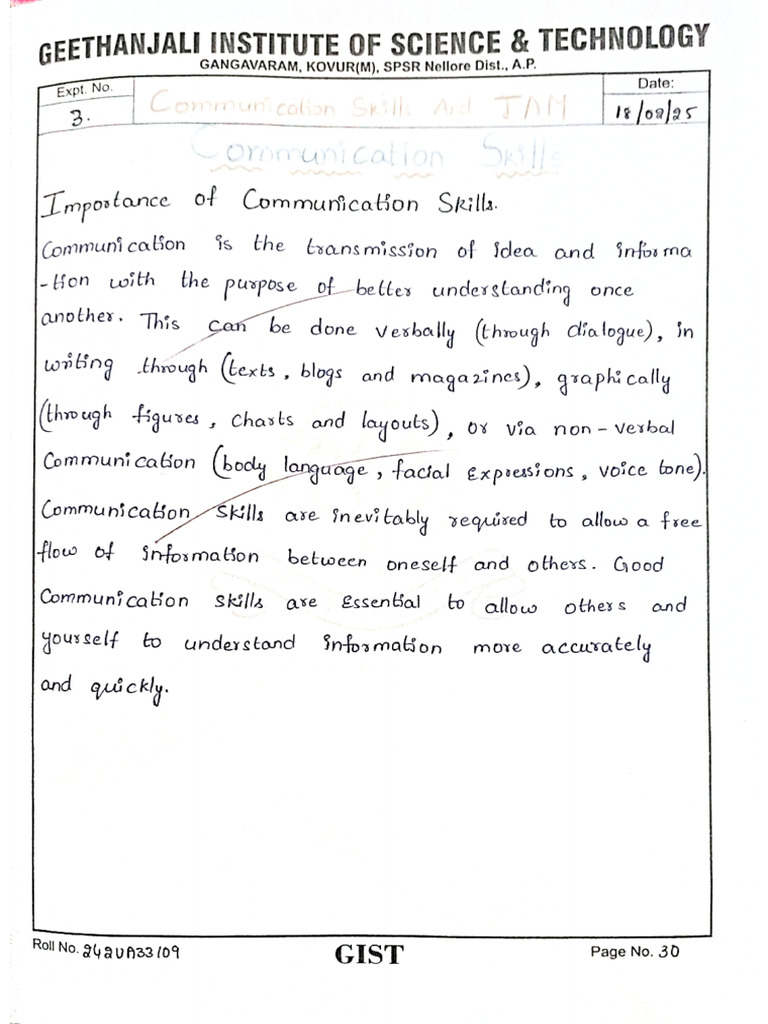 GEETHANJALI INSTITUTE OF SCIENCE & TECHNOLOGY
GANGAVARAM, KOVUR(M), SPSR Nellore Dist., A.P.
Expt. No.
3.
Communication Skills And JAM
Date:
18/02/25
Communication Skills
Importance of Communication Skills.
Communication is the transmission of idea and informa
-tion with the purpose of better understanding once
another. This can be done verbally (through dialogue), in
writing through (texts, blogs and magazines), graphically
(through figures, charts and layouts), or via non-verbal
Communication (body language, facial Expressions, voice tone).
Communication skills are inevitably required to allow a free
flow of information between oneself and others. Good
Communication skills are Essential to allow others and
yourself to understand information more accurately
and quickly.
Roll No. 242UA33109
GIST
Page No. 30